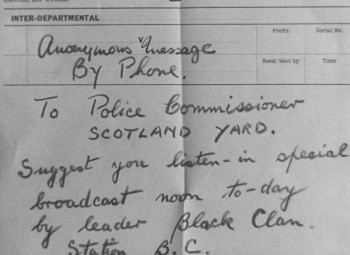 INTER-DEPARTMENTAL
Prefix: Serial No.
Book: Sent by Time
Anonymous Message
By Phone.
To Police Commissioner
SCOTLAND YARD.
Suggest you listen-in special
broadcast noon to-day
by leader Black Clan.
Station B.C.